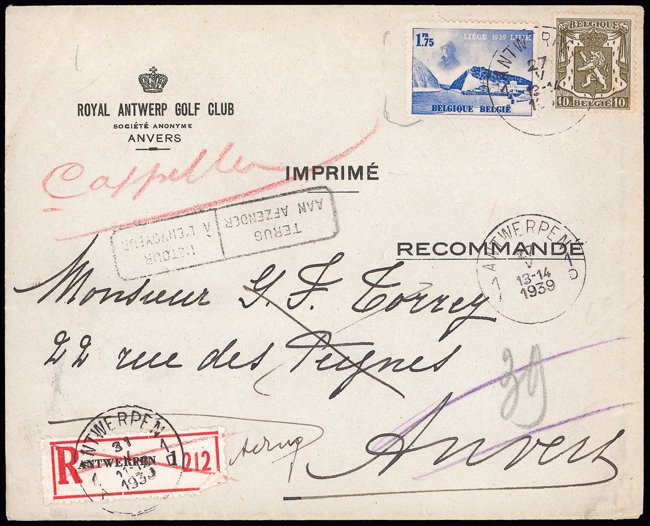 1.75 FR
LIÈGE 1939 LUIK
BELGIQUE BELGIË
BELGIQUE
10 BELGIË 10
ANTWERPEN
27
V
13-14
ROYAL ANTWERP GOLF CLUB
SOCIÉTÉ ANONYME
ANVERS
Cappellen
IMPRIMÉ
TERUG
AAN AFZENDER
RETOUR
À L'ENVOYEUR
RECOMMANDÉ
1 ANTWERPEN 1
V
13-14
1939
Monsieur G. F. Torrey
22 rue des Peignes
Anvers
39
ANTWERPEN
31
1939
R ANTWERPEN 1 212
terug